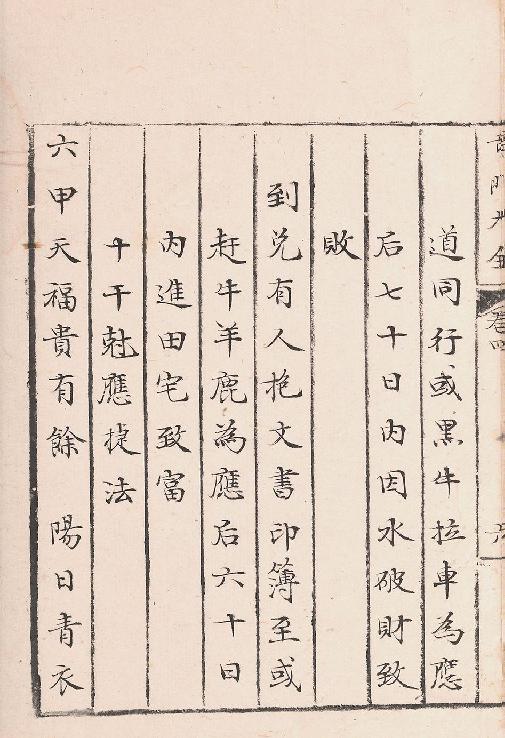 卷四
道同行或黑牛拉車為應
后七十日内因水破財致
敗
到兑有人抱文書印簿至或
赶牛羊鹿為應后六十日
内進田宅致富
十干尅應捷法
六甲天福貴有餘　陽日青衣